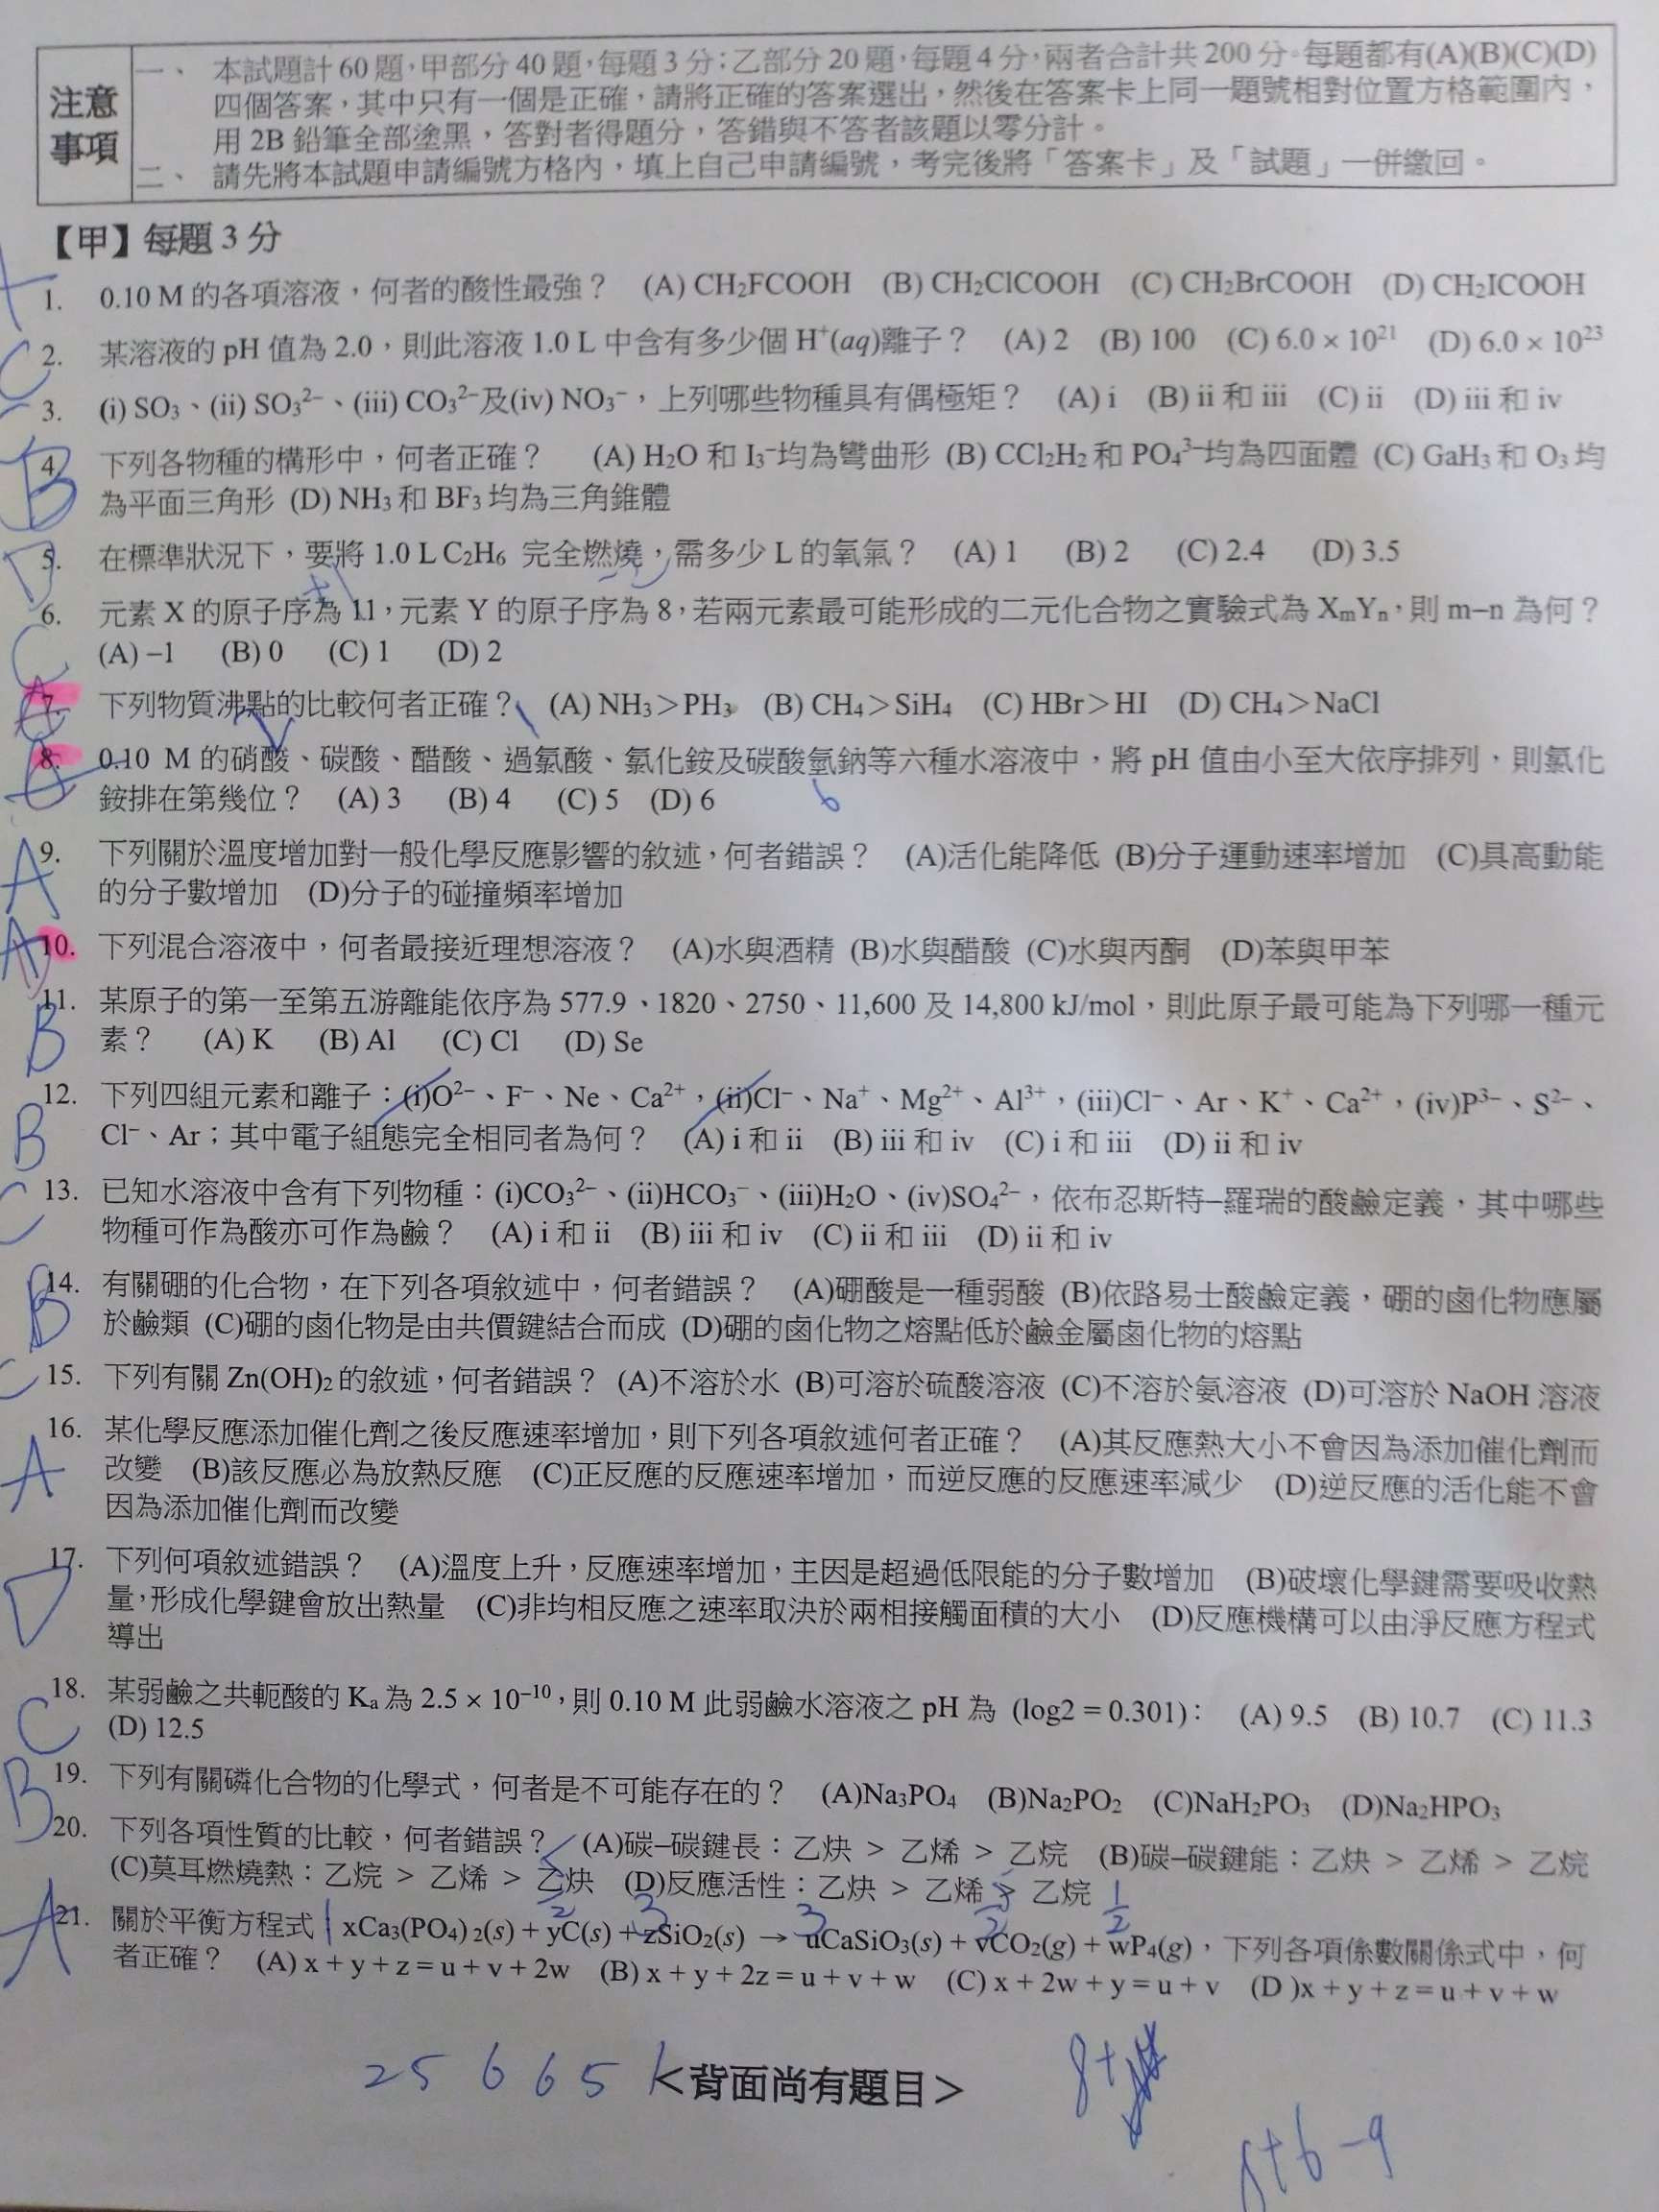 注意事項
一、 本試題計 60 題，甲部分 40 題，每題 3 分；乙部分 20 題，每題 4 分，兩者合計共 200 分。每題都有(A)(B)(C)(D)
四個答案，其中只有一個是正確，請將正確的答案選出，然後在答案卡上同一題號相對位置方格範圍內，
用 2B 鉛筆全部塗黑，答對者得題分，答錯與不答者該題以零分計。
二、 請先將本試題申請編號方格內，填上自己申請編號，考完後將「答案卡」及「試題」一併繳回。
【甲】每題 3 分
1. 0.10 M 的各項溶液，何者的酸性最強？ (A) CH₂FCOOH (B) CH₂ClCOOH (C) CH₂BrCOOH (D) CH₂ICOOH
C 2. 某溶液的 pH 值為 2.0，則此溶液 1.0 L 中含有多少個 H⁺(aq)離子？ (A) 2 (B) 100 (C) 6.0 × 10²¹ (D) 6.0 × 10²³
3. (i) SO₃、(ii) SO₃²⁻、(iii) CO₃²⁻及(iv) NO₃⁻，上列哪些物種具有偶極矩？ (A) i (B) ii 和 iii (C) ii (D) iii 和 iv
B 4. 下列各物種的構形中，何者正確？ (A) H₂O 和 I₃⁻均為彎曲形 (B) CCl₂H₂ 和 PO₄³⁻均為四面體 (C) GaH₃ 和 O₃ 均
為平面三角形 (D) NH₃ 和 BF₃ 均為三角錐體
D 5. 在標準狀況下，要將 1.0 L C₂H₆ 完全燃燒，需多少 L 的氧氣？ (A) 1 (B) 2 (C) 2.4 (D) 3.5
+1 -2
C 6. 元素 X 的原子序為 11，元素 Y 的原子序為 8，若兩元素最可能形成的二元化合物之實驗式為 XₘYₙ，則 m–n 為何？
(A) –1 (B) 0 (C) 1 (D) 2
7. 下列物質沸點的比較何者正確？ (A) NH₃＞PH₃ (B) CH₄＞SiH₄ (C) HBr＞HI (D) CH₄＞NaCl
8. 0.10 M 的硝酸、碳酸、醋酸、過氯酸、氯化銨及碳酸氫鈉等六種水溶液中，將 pH 值由小至大依序排列，則氯化
銨排在第幾位？ (A) 3 (B) 4 (C) 5 (D) 6
6
A 9. 下列關於溫度增加對一般化學反應影響的敘述，何者錯誤？ (A)活化能降低 (B)分子運動速率增加 (C)具高動能
的分子數增加 (D)分子的碰撞頻率增加
10. 下列混合溶液中，何者最接近理想溶液？ (A)水與酒精 (B)水與醋酸 (C)水與丙酮 (D)苯與甲苯
B 11. 某原子的第一至第五游離能依序為 577.9、1820、2750、11,600 及 14,800 kJ/mol，則此原子最可能為下列哪一種元
素？ (A) K (B) Al (C) Cl (D) Se
B 12. 下列四組元素和離子：(i)O²⁻、F⁻、Ne、Ca²⁺，(ii)Cl⁻、Na⁺、Mg²⁺、Al³⁺，(iii)Cl⁻、Ar、K⁺、Ca²⁺，(iv)P³⁻、S²⁻、
Cl⁻、Ar；其中電子組態完全相同者為何？ (A) i 和 ii (B) iii 和 iv (C) i 和 iii (D) ii 和 iv
C 13. 已知水溶液中含有下列物種：(i)CO₃²⁻、(ii)HCO₃⁻、(iii)H₂O、(iv)SO₄²⁻，依布忍斯特–羅瑞的酸鹼定義，其中哪些
物種可作為酸亦可作為鹼？ (A) i 和 ii (B) iii 和 iv (C) ii 和 iii (D) ii 和 iv
B 14. 有關硼的化合物，在下列各項敘述中，何者錯誤？ (A)硼酸是一種弱酸 (B)依路易士酸鹼定義，硼的鹵化物應屬
於鹼類 (C)硼的鹵化物是由共價鍵結合而成 (D)硼的鹵化物之熔點低於鹼金屬鹵化物的熔點
C 15. 下列有關 Zn(OH)₂ 的敘述，何者錯誤？ (A)不溶於水 (B)可溶於硫酸溶液 (C)不溶於氨溶液 (D)可溶於 NaOH 溶液
A 16. 某化學反應添加催化劑之後反應速率增加，則下列各項敘述何者正確？ (A)其反應熱大小不會因為添加催化劑而
改變 (B)該反應必為放熱反應 (C)正反應的反應速率增加，而逆反應的反應速率減少 (D)逆反應的活化能不會
因為添加催化劑而改變
D 17. 下列何項敘述錯誤？ (A)溫度上升，反應速率增加，主因是超過低限能的分子數增加 (B)破壞化學鍵需要吸收熱
量，形成化學鍵會放出熱量 (C)非均相反應之速率取決於兩相接觸面積的大小 (D)反應機構可以由淨反應方程式
導出
C 18. 某弱鹼之共軛酸的 Kₐ 為 2.5 × 10⁻¹⁰，則 0.10 M 此弱鹼水溶液之 pH 為 (log2 = 0.301)： (A) 9.5 (B) 10.7 (C) 11.3
(D) 12.5
B 19. 下列有關磷化合物的化學式，何者是不可能存在的？ (A)Na₃PO₄ (B)Na₂PO₂ (C)NaH₂PO₃ (D)Na₂HPO₃
20. 下列各項性質的比較，何者錯誤？ (A)碳–碳鍵長：乙炔 > 乙烯 > 乙烷 (B)碳–碳鍵能：乙炔 > 乙烯 > 乙烷
(C)莫耳燃燒熱：乙烷 > 乙烯 > 乙炔 (D)反應活性：乙炔 > 乙烯 > 乙烷
1 5/2 3 3 5/2 1/2
A 21. 關於平衡方程式 xCa₃(PO₄)₂(s) + yC(s) + zSiO₂(s) → uCaSiO₃(s) + vCO₂(g) + wP₄(g)，下列各項係數關係式中，何
者正確？ (A) x + y + z = u + v + 2w (B) x + y + 2z = u + v + w (C) x + 2w + y = u + v (D )x + y + z = u + v + w
2 5 6 6 5 1
<背面尚有題目>
8+6-9